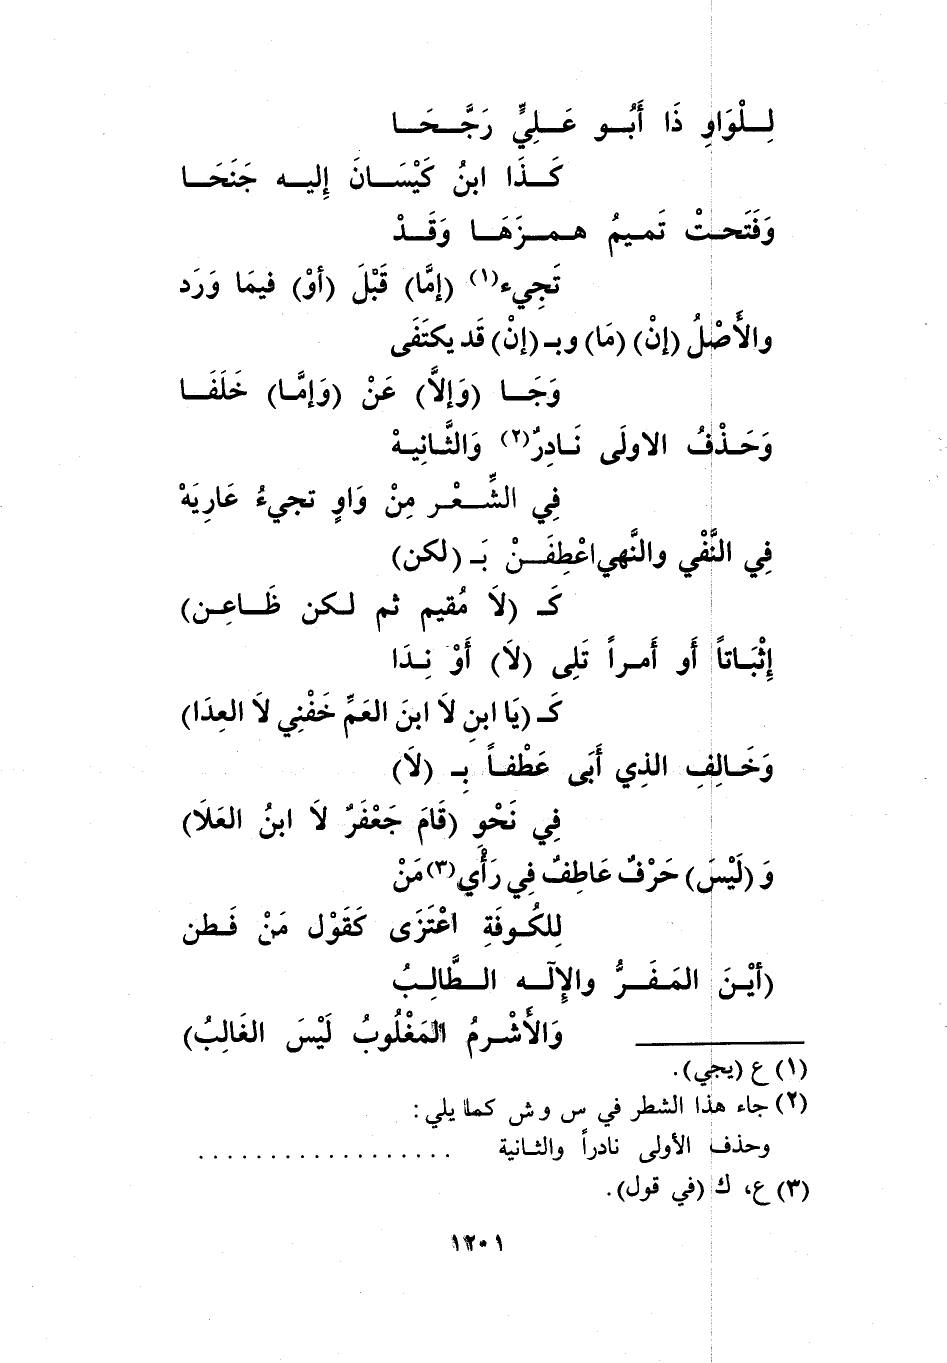 لِلْوَاوِ ذَا أَبُو عَلِيٍّ رَجَّحَا
كَذَا ابنُ كَيْسَانَ إِليه جَنَحَا
وَفَتَحتْ تَميمُ همزَهَا وَقَدْ
تَجِيء(١) (إمَّا) قَبْلَ (أوْ) فيمَا وَرَد
والأَصْلُ (إنْ) (مَا) وبـ (إنْ) قَد يكتَفَى
وَجَا (وَإلاَّ) عَنْ (وَإمَّا) خَلَفَا
وَحَذْفُ الاولَى نَادِرٌ(٢) وَالثَّانِيهْ
فِي الشِّعْر مِنْ وَاوٍ تجيءُ عَارِيَهْ
فِي النَّفْي والنَّهي اعْطِفَنْ بَـ (لكن)
كَـ (لاَ مُقيم ثم لكن ظَاعِن)
إِثْبَاتاً أَو أَمراً تَلِى (لاَ) أَوْ نِدَا
كَـ (يَا ابنِ لاَ ابنَ العَمِّ خَفْنِي لاَ العِدَا)
وَخَالِفِ الذِي أَبَى عَطْفاً بِـ (لاَ)
فِي نَحْوِ (قَامَ جَعْفَرٌ لاَ ابنُ العَلاَ)
وَ (لَيْسَ) حَرْفٌ عَاطِفٌ فِي رَأْيِ(٣) مَنْ
لِلكُوفَةِ اعْتَزَى كَقَوْل مَنْ فَطن
(أيْنَ المَفَرُّ والإِلَه الطَّالِبُ
وَالأَشْرمُ المَغْلُوبُ لَيْسَ الغَالِبُ)
(١) ع (يجي).
(٢) جاء هذا الشطر في س و ش كما يلي:
وحذف الأولى نادراً والثانية . . . . . . . . . . . . . . . . . .
(٣) ع، ك (في قول).
١٢٠١